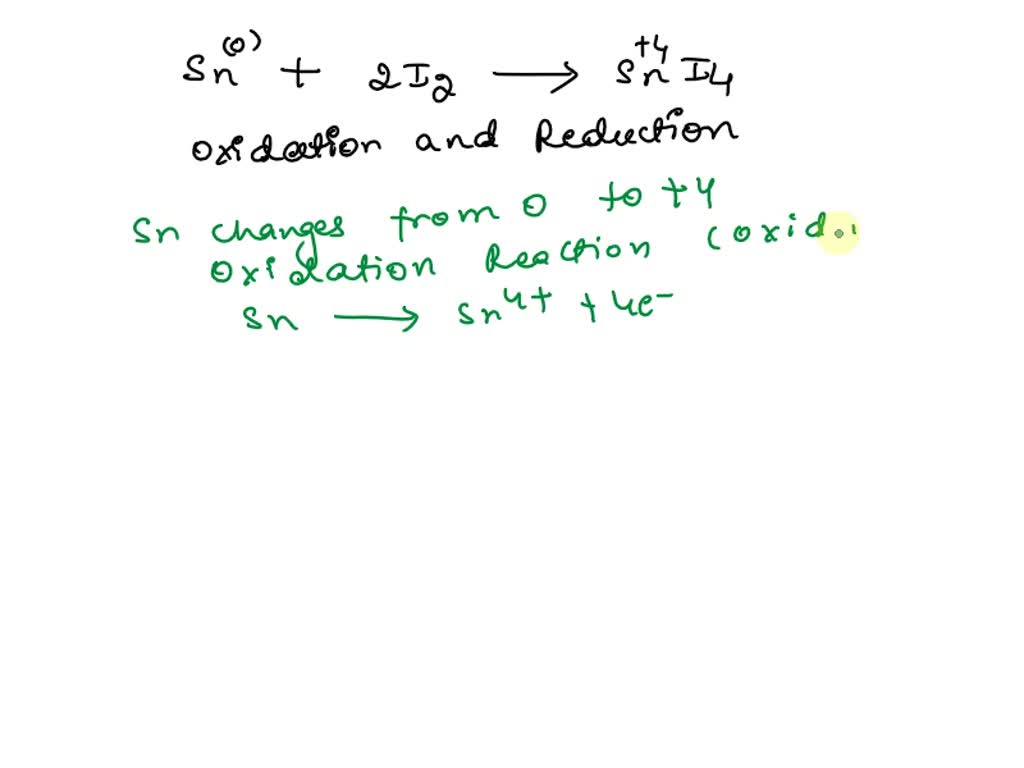 Sn⁽⁰⁾ + 2I₂ ⟶ Sn⁺⁴I₄
Oxidation and Reduction
Sn changes from 0 to +4
Oxidation Reaction (oxid.
Sn ⟶ Sn⁴⁺ + 4e⁻